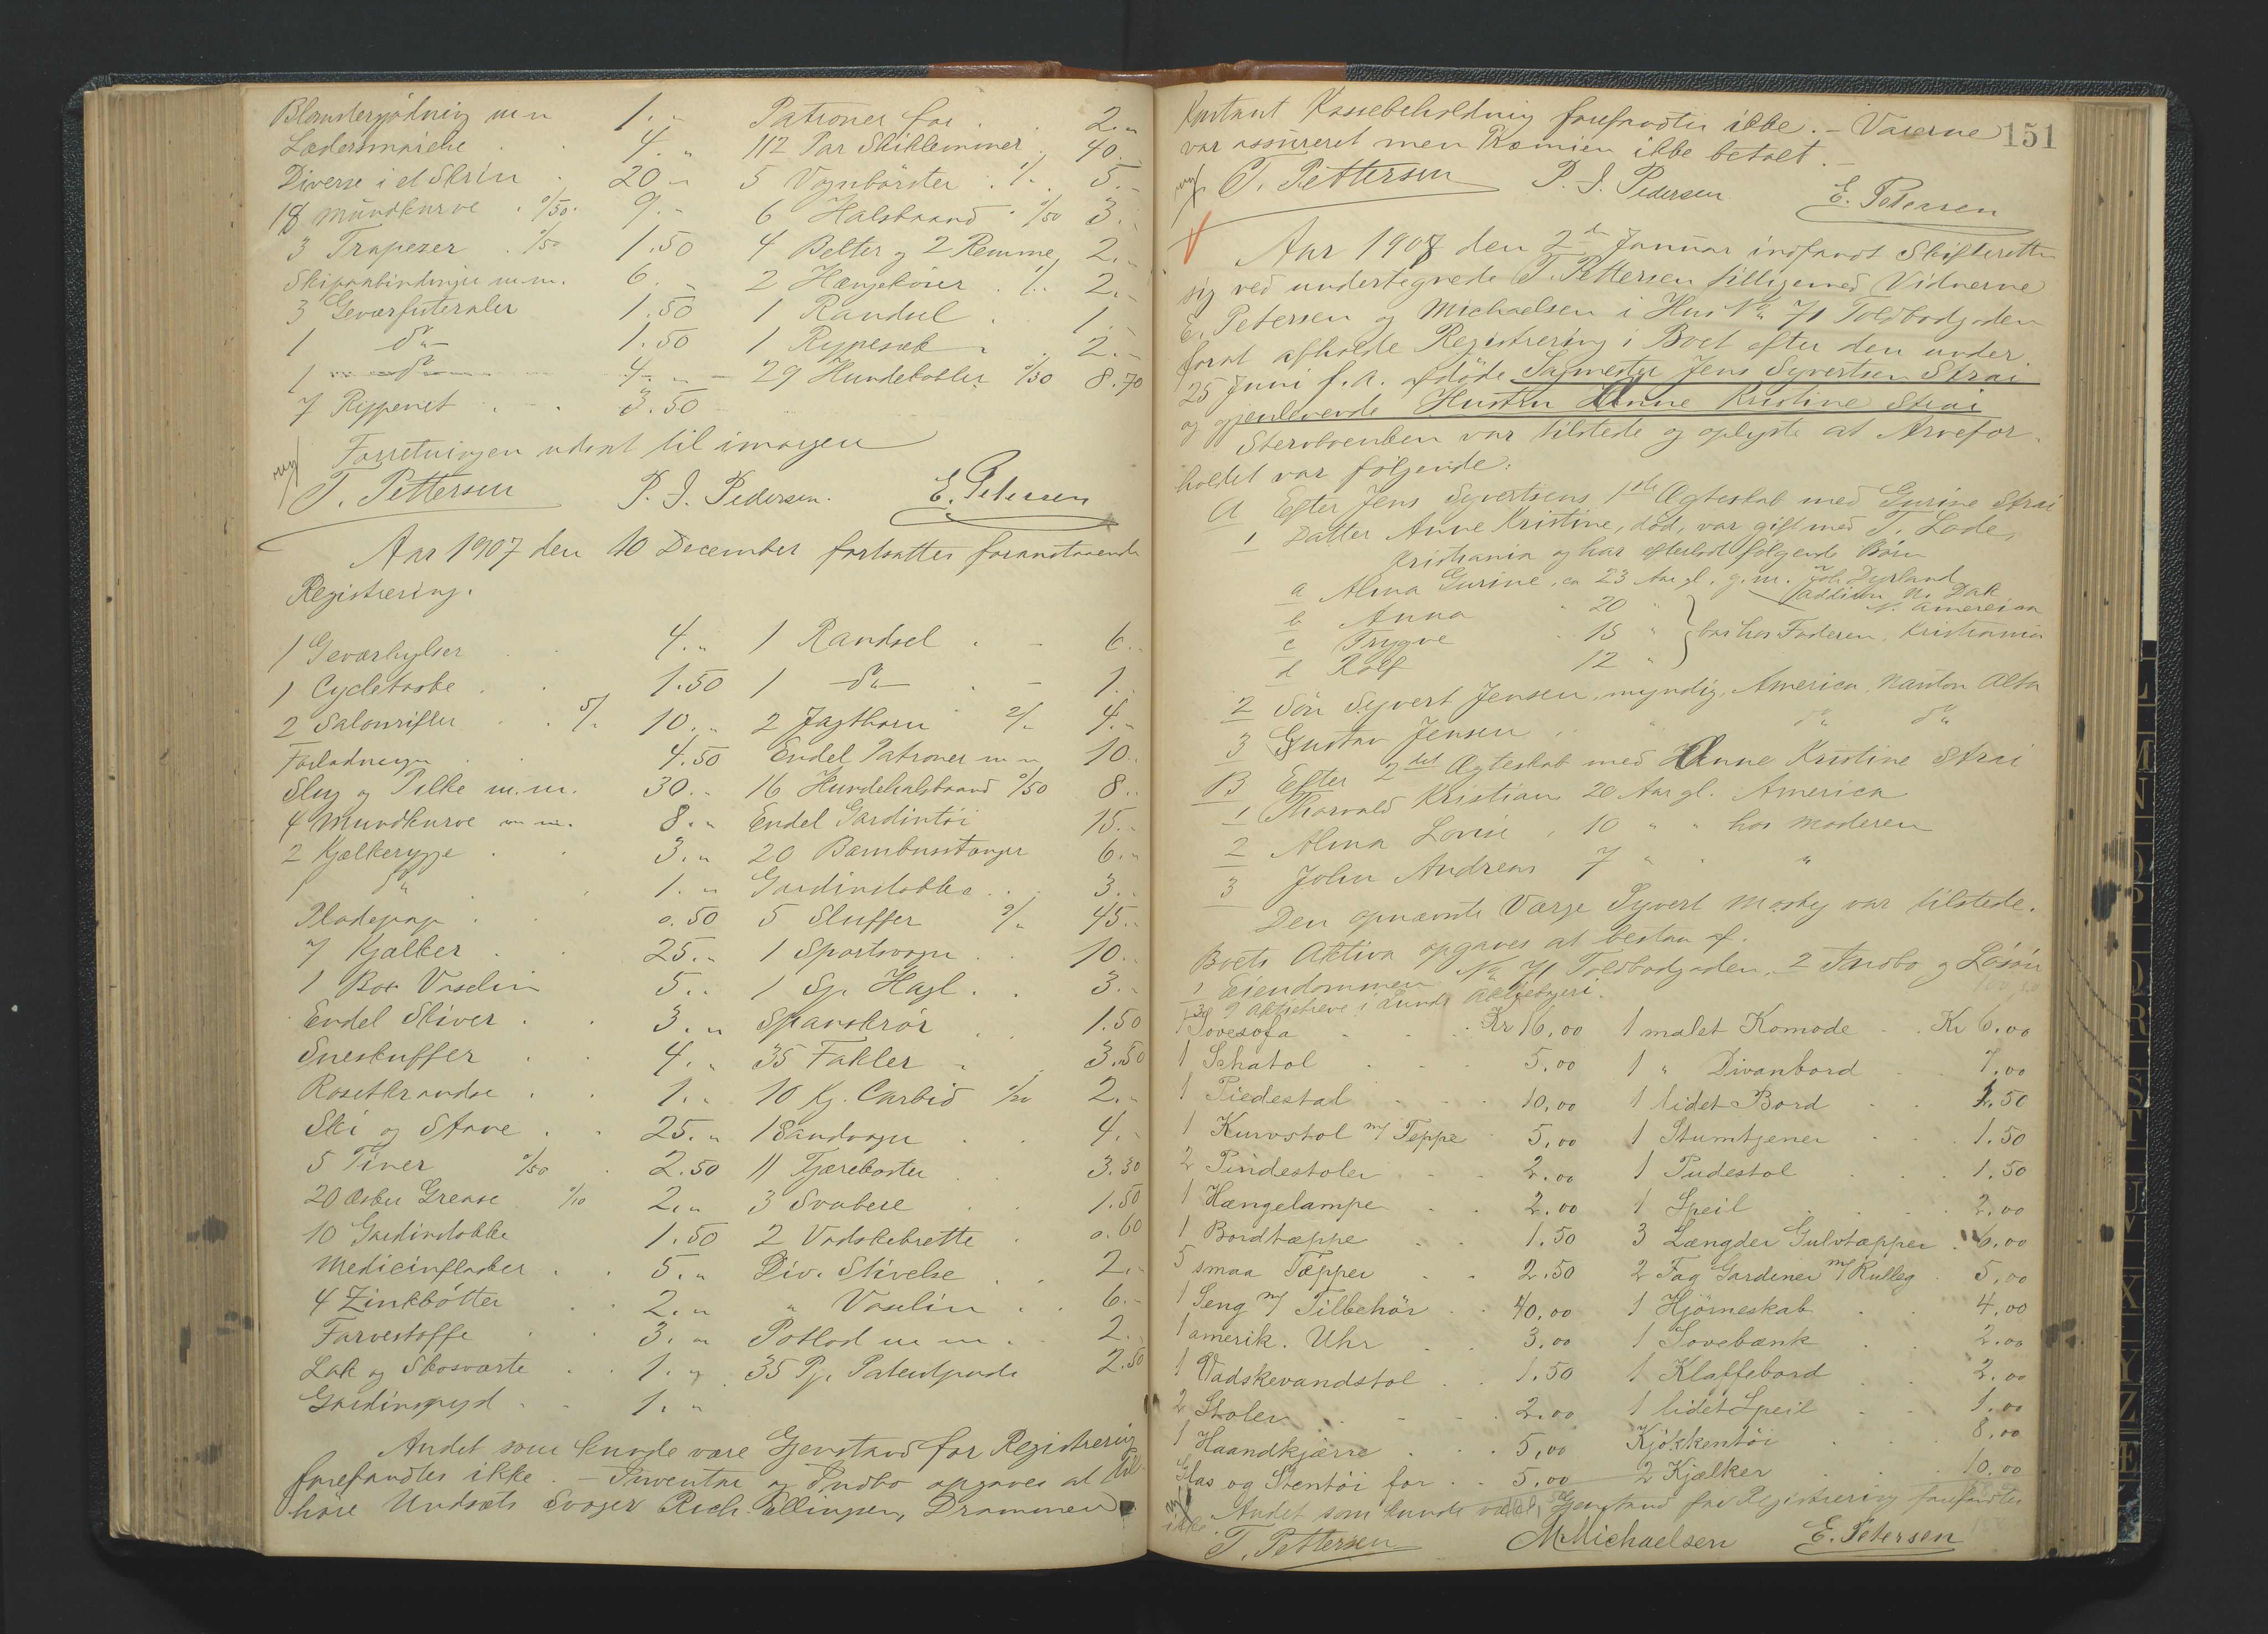 Blomstergjødning m m 1.„ Patroner for . . 2.„
Lædersmørelse . . 4.„ 112 Par Skiklemmer . 40.„
Diverse i et Skrin . 20.„ 5 Vognbørster . 1/„ 5.„
18 Mundkurve . °/50. 9.„ 6 Halsbaand . °/50 3.„
3 Trapezer . °/50 1.50 4 Belter og 2 Remme 2.„
Skiforbindinger m.m. 6.„ 2 Hængekøier . 1/„ 2.„
3 Geværfuteraler 1.50 1 Randsel . 1.„
1 do 1.50 1 Rypesæk . . 2.„
1 do 4.„ 29 Hundekobler °/30 8.70
7 Rypenet . . . 3.50
Forretningen udsat til imorgen
T. Pettersen P. J. Pedersen. E. Petersen
Aar 1907 den 10 December fortsattes foranstaaende
Registrering.
1 Geværhylser . . 4.„ 1 Randsel . - 6.„
1 Cycletaske . . 1.50 1 do . - 1.„
2 Salonrifler . . 5/„ 10.„ 2 Jagthorn 2/„ 4.„
Forladninger . 4.50 Endel Patroner m m 10.„
Slug og Pilke m.m. 30.„ 16 Hundehalsbaand °/50 8.„
4 Mundkurve m m. 8.„ Endel Gardintøi 15.„
2 Kjælkerygge . . 3.„ 20 Bambusstanger 6.„
1 do . 1.„ Gardinslobka . . 3.„
Pladepap . . 0.50 5 Sluffer 9/„ 45.„
7 Kjælker . . 25.„ 1 Sportsvogn . . 10.„
1 Box Vaselin 5.„ 1 Sp. Hagl . . 3.„
Endel Skiver . . 3.„ Spanskrør . . 1.50
Sneskuffer . . 4.„ 35 Fakler . . 3.50
Rosetkrandse . . 1.„ 10 Kg. Carbid °/20 2.„
Ski og Stave . . 25.„ 1 Sandvogn . . 4.„
5 Tiner °/50 . 2.50 11 Tjærekoster . . 3.30
20 Æsker Grease °/10 2.„ 3 Svabere . . 1.50
10 Gardinslobke 1.50 2 Vadskebrette . 0.60
Medicinflasker . . 5.„ Div. Stivelse . . 2.„
4 Zinkbøtter . . 2.„ „ Vaselin . . 6.„
Farvestoffe . . 3.„ Potlod m m . . 2.„
Lak og Skosværte . . 1.„ 35 Pj. Patentpuds 2.50
Gardinspyd . . 1.„
Andet som kunde være Gjenstand for Registrering
forefandtes ikke. – Inventar og Indbo opgaves at til-
høre Undsets Svoger Rich. Ellingsen, Drammen
151
Kontant Kassebeholdning forefandtes ikke. – Varerne
var assureret men Præmien ikke betalt. –
T. Pettersen P. J. Pedersen E. Petersen
Aar 1908 den 2den Januar indfandt Skifteretten
sig ved undertegnede T. Pettersen tilligemed Vidnerne
E. Petersen og Michaelsen i Hus No 71 Toldbodgaden
forat afholde Registrering i Boet efter den under
25 Juni f. A. afdøde Sagmester Jens Syvertsen Strai
og gjenlevende Hustru Anne Kristine Strai
Stervboenken var tilstede og oplyste at Arvefor-
holdet var følgende:
A Efter Jens Syvertsens 1ste Ægteskab med Gurine Strai
1 Datter Anne Kristine, død, var gift med T. Lode,
Kristiania og har efterladt følgende Børn
a Alma Gurine, ca 23 Aar gl. g. m. Joh. Dyrland
Addison N. Dak
N. Amereica
b Anna „ 20 „
c Trygve „ 15 „ bor hos Faderen, Kristiania
d Rolf 12 „
2 Søn Syvert Jensen, myndig, America, Nanton Alta
3 Gustav Jensen „ „ do do
B Efter 2det Ægteskab med Anne Kristine Strai
1 Thorvald Kristian 20 Aar gl. America
2 Alma Lovise „ 10 „ „ hos Moderen
3 John Andreas 7 „ „ „
Den opnævnte Værge Syvert Mosby var tilstede.
Boets Aktiva opgaves at bestaa af.
1 Eiendommen No 71 Toldbodgaden, 2 Indbo og Løsøre
3 2 Aktiebreve i Lunds Aktiebryggeri.
1 Sovesofa . . . Kr 16,00 1 malet Komode . . Kr 6.00
1 Schatol . . . 5,00 1 „ Divanbord . . 7,00
1 Piedestal . . . 10,00 1 lidet Bord . . 2.50
1 Kurvstol m/ Teppe . 5,00 1 Stumtjener . . . 1.50
2 Pindestoler . . 2.00 1 Pudestol . . . 1.50
1 Hængelampe . . 2.00 1 Speil . . . 2.00
1 Bordtæppe . . 1.50 3 Længder Gulvtæpper . 6.00
5 smaa Tæpper . . 2.50 2 Fag Gardiner m/ Rulleg. . 5,00
1 Seng m/ Tilbehør . . 40,00 1 Hjørneskab . . 4.00
1 amerik. Uhr . . 3.00 1 Sovebænk . . 2.00
1 Vadskevandstol . . 1.50 1 Klaffebord . . 2.00
2 Stoler . . . 2.00 1 lidet Speil . . 1.00
1 Haandkjærre . . . 5,00 Kjøkkentøi . . . 8,00
Glas og Stentøi for . . 5.00 2 Kjælker . . . 10.00
Andet som kunde være Gjenstand for Registrering forefandtes
ikke.
T. Pettersen M Michaelsen E. Petersen